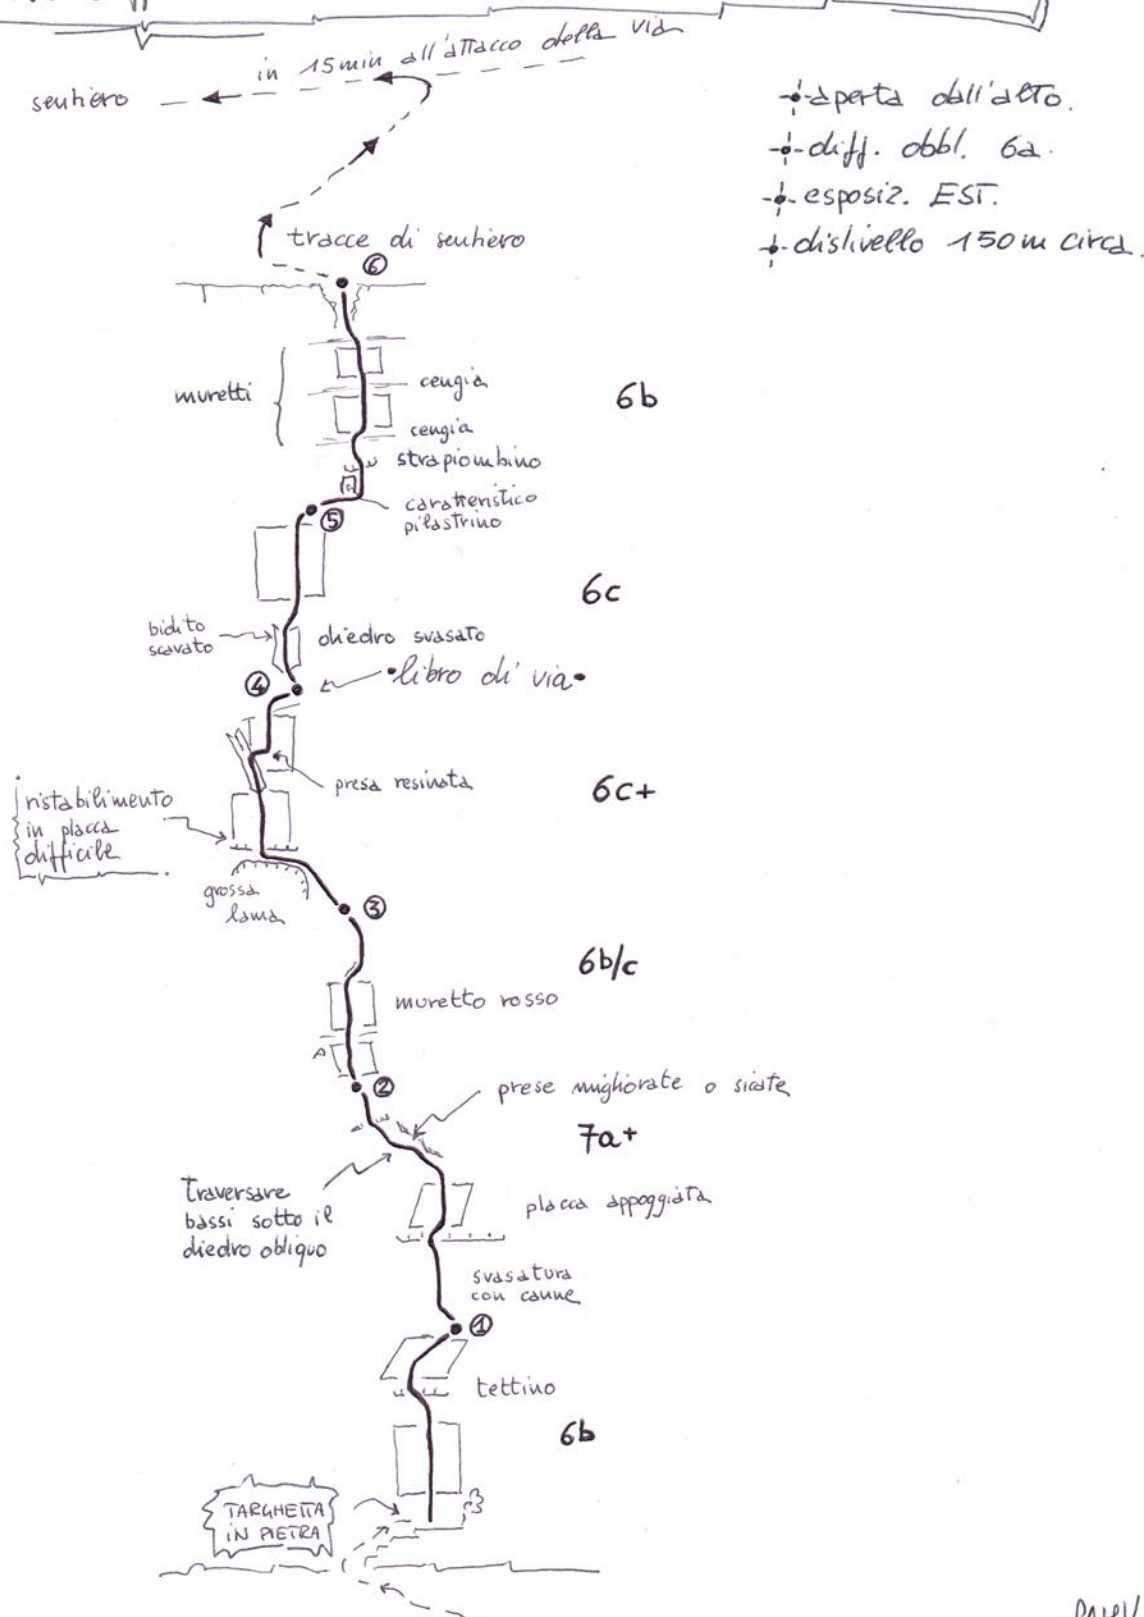 in 15min all'attacco della via
sentiero
aperta dall'alto.
diff. obbl. 6a.
esposiz. EST.
dislivello 150m circa.
tracce di sentiero
6
muretti
cengia
6b
cengia
strapiombino
caratteristico
pilastrino
5
6c
bidito
scavato
diedro svasato
4
•libro di via•
presa resinata
6c+
ristabilimento
in placca
difficile
grossa
lama
3
6b/c
muretto rosso
2
prese migliorate o sicate
7a+
Traversare
bassi sotto il
diedro obliquo
placca appoggiata
svasatura
con canne
1
tettino
6b
TARGHETTA
IN PIETRA